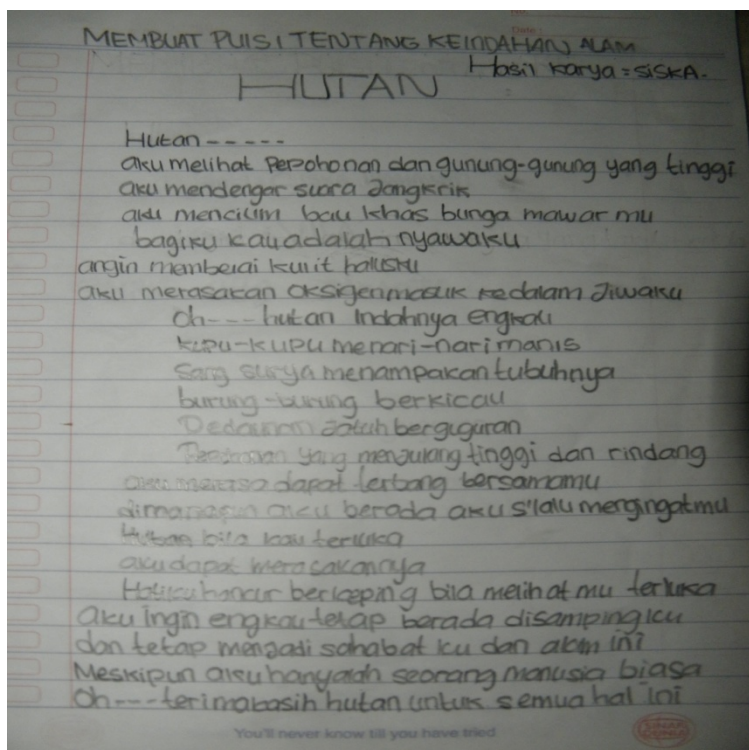 Date :
MEMBUAT PUISI TENTANG KEINDAHAN ALAM
Hasil karya = SISKA.
HUTAN
Hutan -----
aku melihat Pepohonan dan gunung-gunung yang tinggi
aku mendengar suara Jangkrik
aku mencium bau khas bunga mawar mu
bagiku kau adalah nyawaku
angin membelai kulit halusku
aku merasakan oksigen masuk kedalam Jiwaku
Oh---- hutan Indahnya engkau
kupu-kupu menari-nari manis
Sang surya menampakan tubuhnya
burung-burung berkicau
Dedaunan Jatuh berguguran
Pepohonan yang menjulang tinggi dan rindang
aku merasa dapat terbang bersamamu
dimanapun aku berada aku s'lalu mengingatmu
Hutan bila kau terluka
aku dapat merasakannya
Hatiku hancur berkeping bila melihat mu terluka
aku ingin engkau tetap berada disampingku
dan tetap menjadi sahabat ku dan alam ini
Meskipun aku hanyalah seorang manusia biasa
Oh---- terimakasih hutan untuk semua hal ini
You'll never know till you have tried
SINAR DUNIA